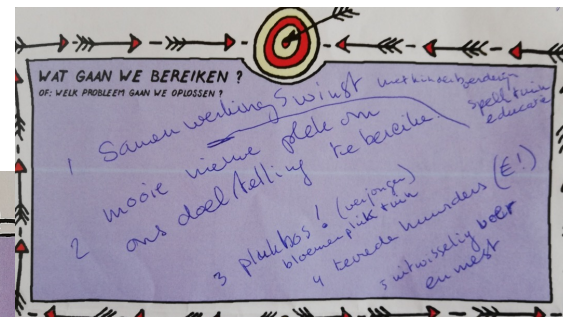 WAT GAAN WE BEREIKEN?
OF: WELK PROBLEEM GAAN WE OPLOSSEN?
1 Samenwerkingswinst met kinderboerderij
speeltuin
educatie
2 mooie nieuwe plek om
ons doelstelling te bereiken
3 plukbos! (verjongen)
bloemenpluktuin
4 tevreden huurders (€!)
5 uitwisseling voer
en mest